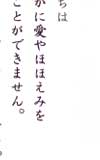 ちは
かに愛やほほえみを
ことができません。